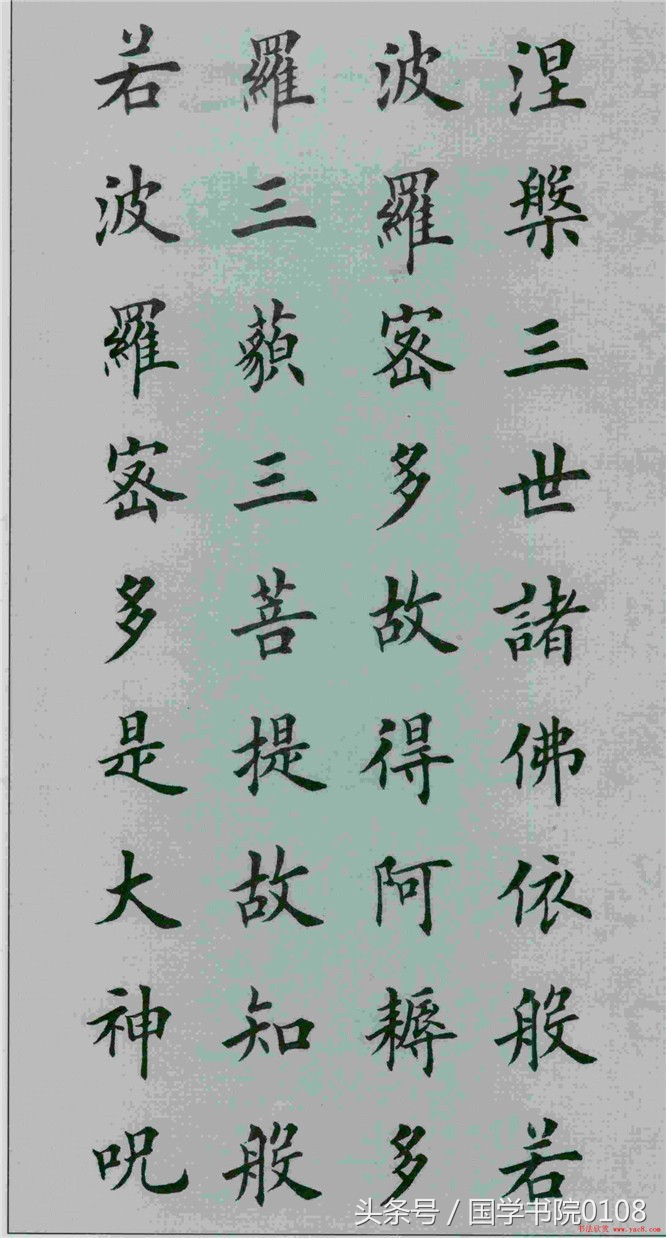 涅槃三世諸佛依般若
波羅密多故得阿耨多
羅三藐三菩提故知般
若波羅密多是大神呪
头条号 / 国学书院0108
书法欣赏 www.yac8.com